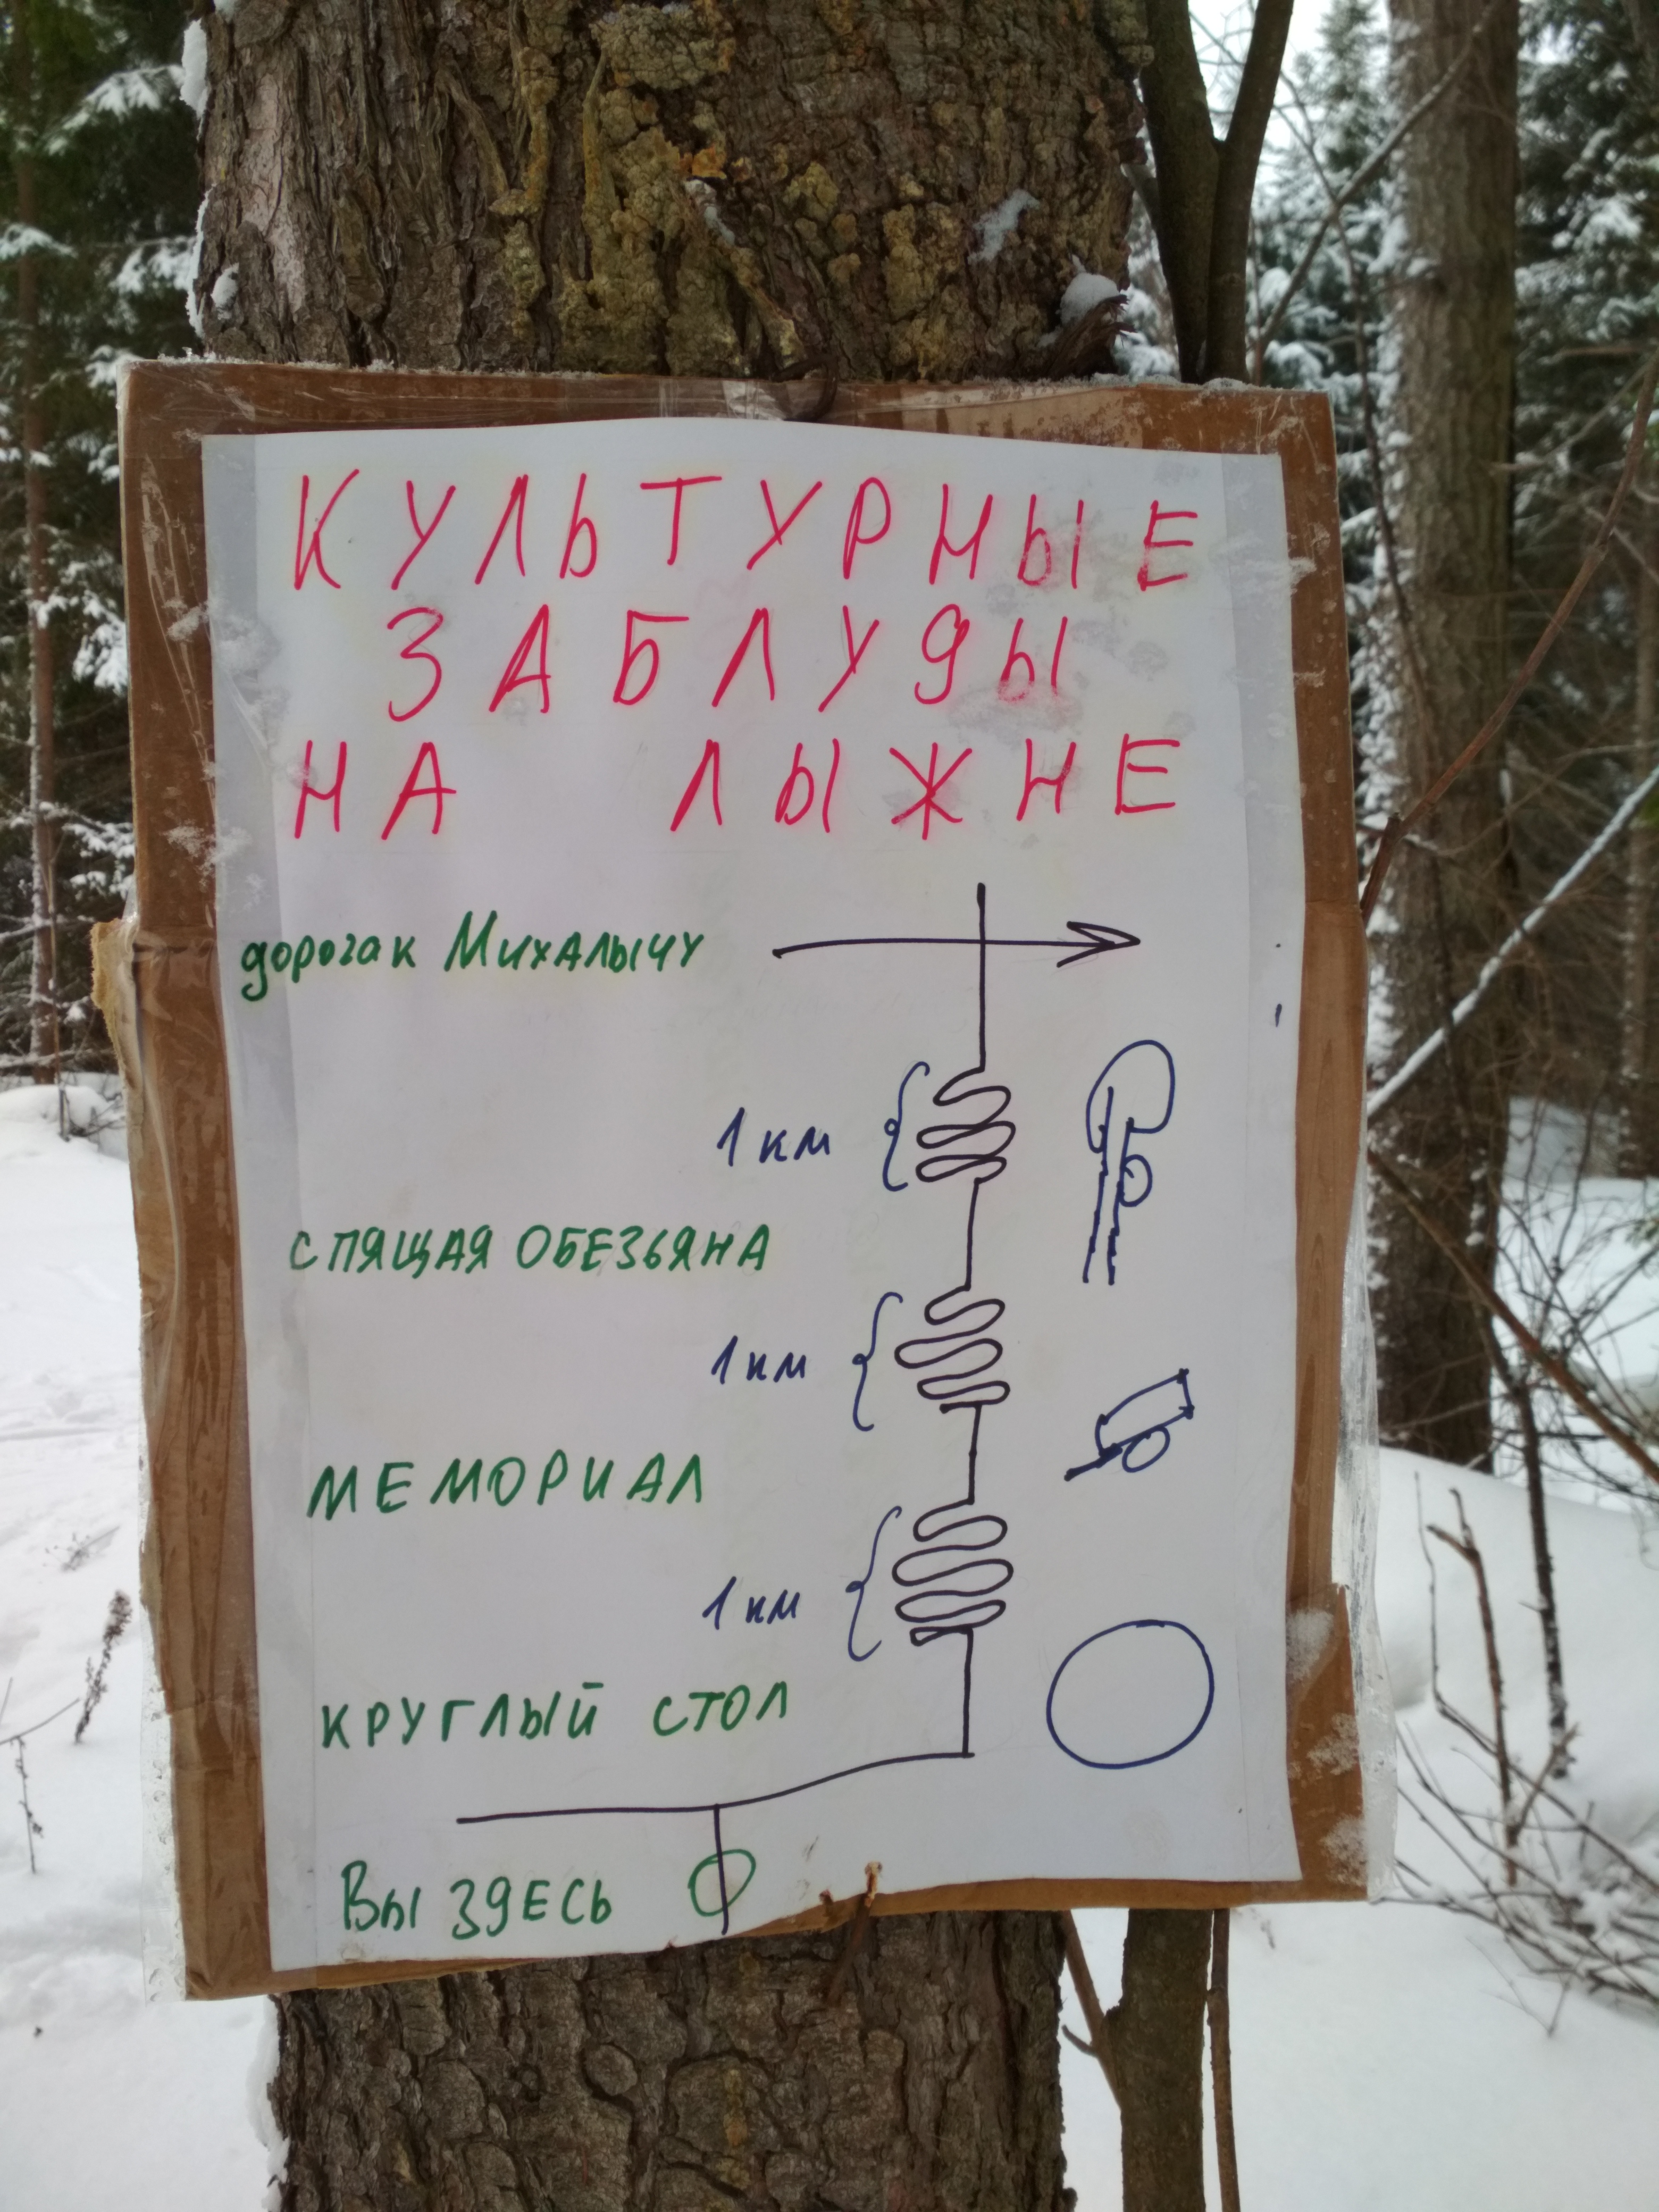 КУЛЬТУРНЫЕ
ЗАБЛУДЫ
НА ЛЫЖНЕ
дорога к Михалычу
1 км
СПЯЩАЯ ОБЕЗЬЯНА
1 км
МЕМОРИАЛ
1 км
КРУГЛЫЙ СТОЛ
ВЫ ЗДЕСЬ